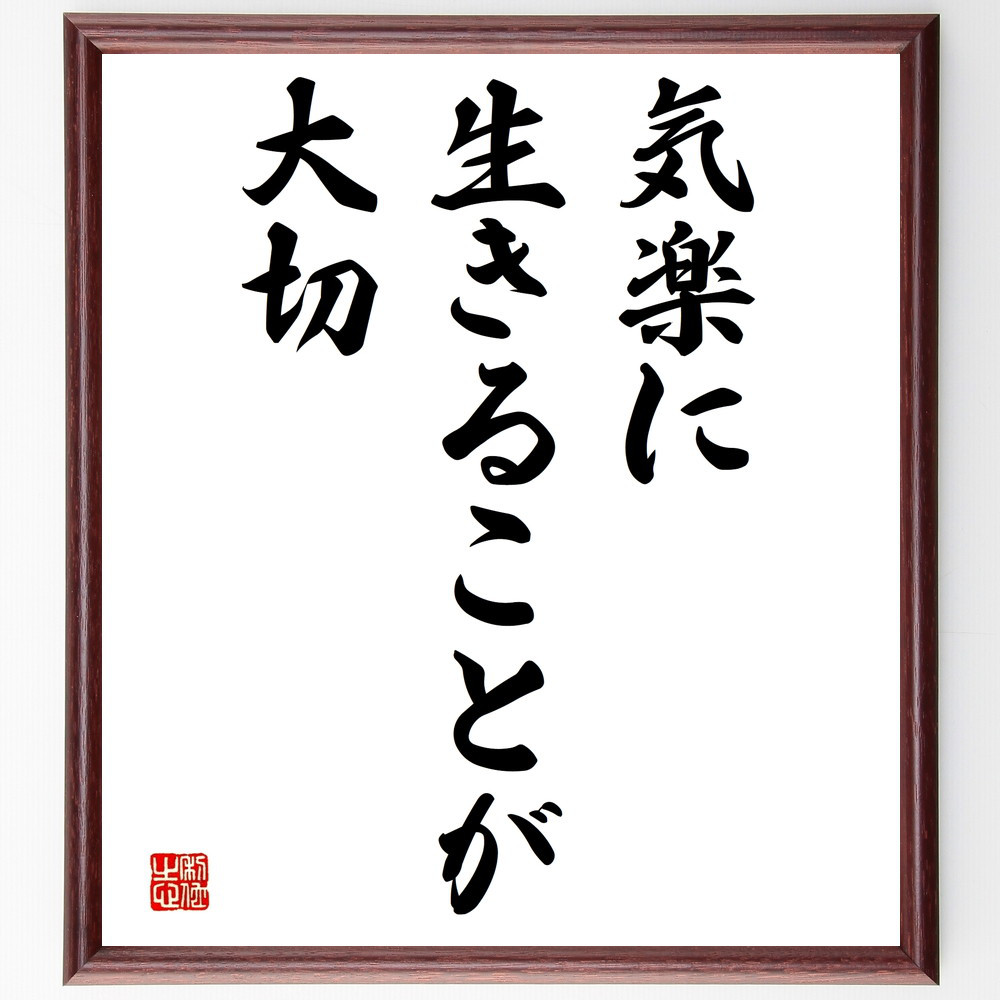 気楽に
生きることが
大切